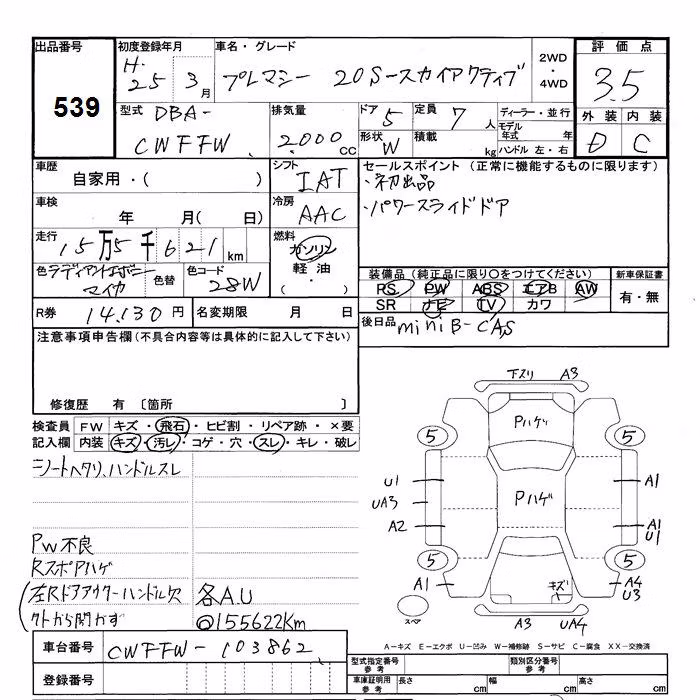 出品番号
539
初度登録年月
H.
25 3月
車名・グレード
プレマシー 20Sースカイアクティブ
2WD
・
4WD
評価点
3.5
外装 内装
D C
型式
DBA-
CWFFW
排気量
2.000cc
ドア 5
形状 W
定員 7人
積載 kg
ディーラー・並行
モデル
年式 年
ハンドル 左・右
車歴
自家用・( )
シフト
IAT
車検
年 月( 日)
冷房
AAC
走行
15万5千621km
燃料
ガソリン
軽油
( ・ )
色 ラディアントエボニー
マイカ
色替
色コード
28W
R券
14.130円
名変期限 月 日
セールスポイント(正常に機能するものに限ります)
・初出品
・パワースライドドア
装備品(純正品に限り○をつけてください)
RS PW ABS エアB AW
SR ナビ TV カワ
新車保証書
有・無
後日品
miniB-CAS
注意事項申告欄(不具合内容等は具体的に記入して下さい)
修復歴 有〔箇所 〕
検査員
記入欄
FW キズ・飛石・ヒビ割・リペア跡・×要
内装 キズ・汚レ・コゲ・穴・スレ・キレ・破レ
シートヘタリ、ハンドルスレ
PW不良
Rスポアハゲ
左Rドアアウターハンドル欠
クトから開かず
各A.U
@155622Km
下スリ A3
Pハゲ
5 5
U1
UA3
A2
Pハゲ
A1
A1
U1
5 5
A1
キズ
A4
U3
スペア
A3 UA4
A−キズ E−エクボ U−凹み W−補修跡 S−サビ C−腐食 XX−交換済
車台番号
CWFFW-103862
登録番号
型式指定番号
参考
類別区分番号
参考
車庫証明用
参考
長さ cm
幅 cm
高さ cm